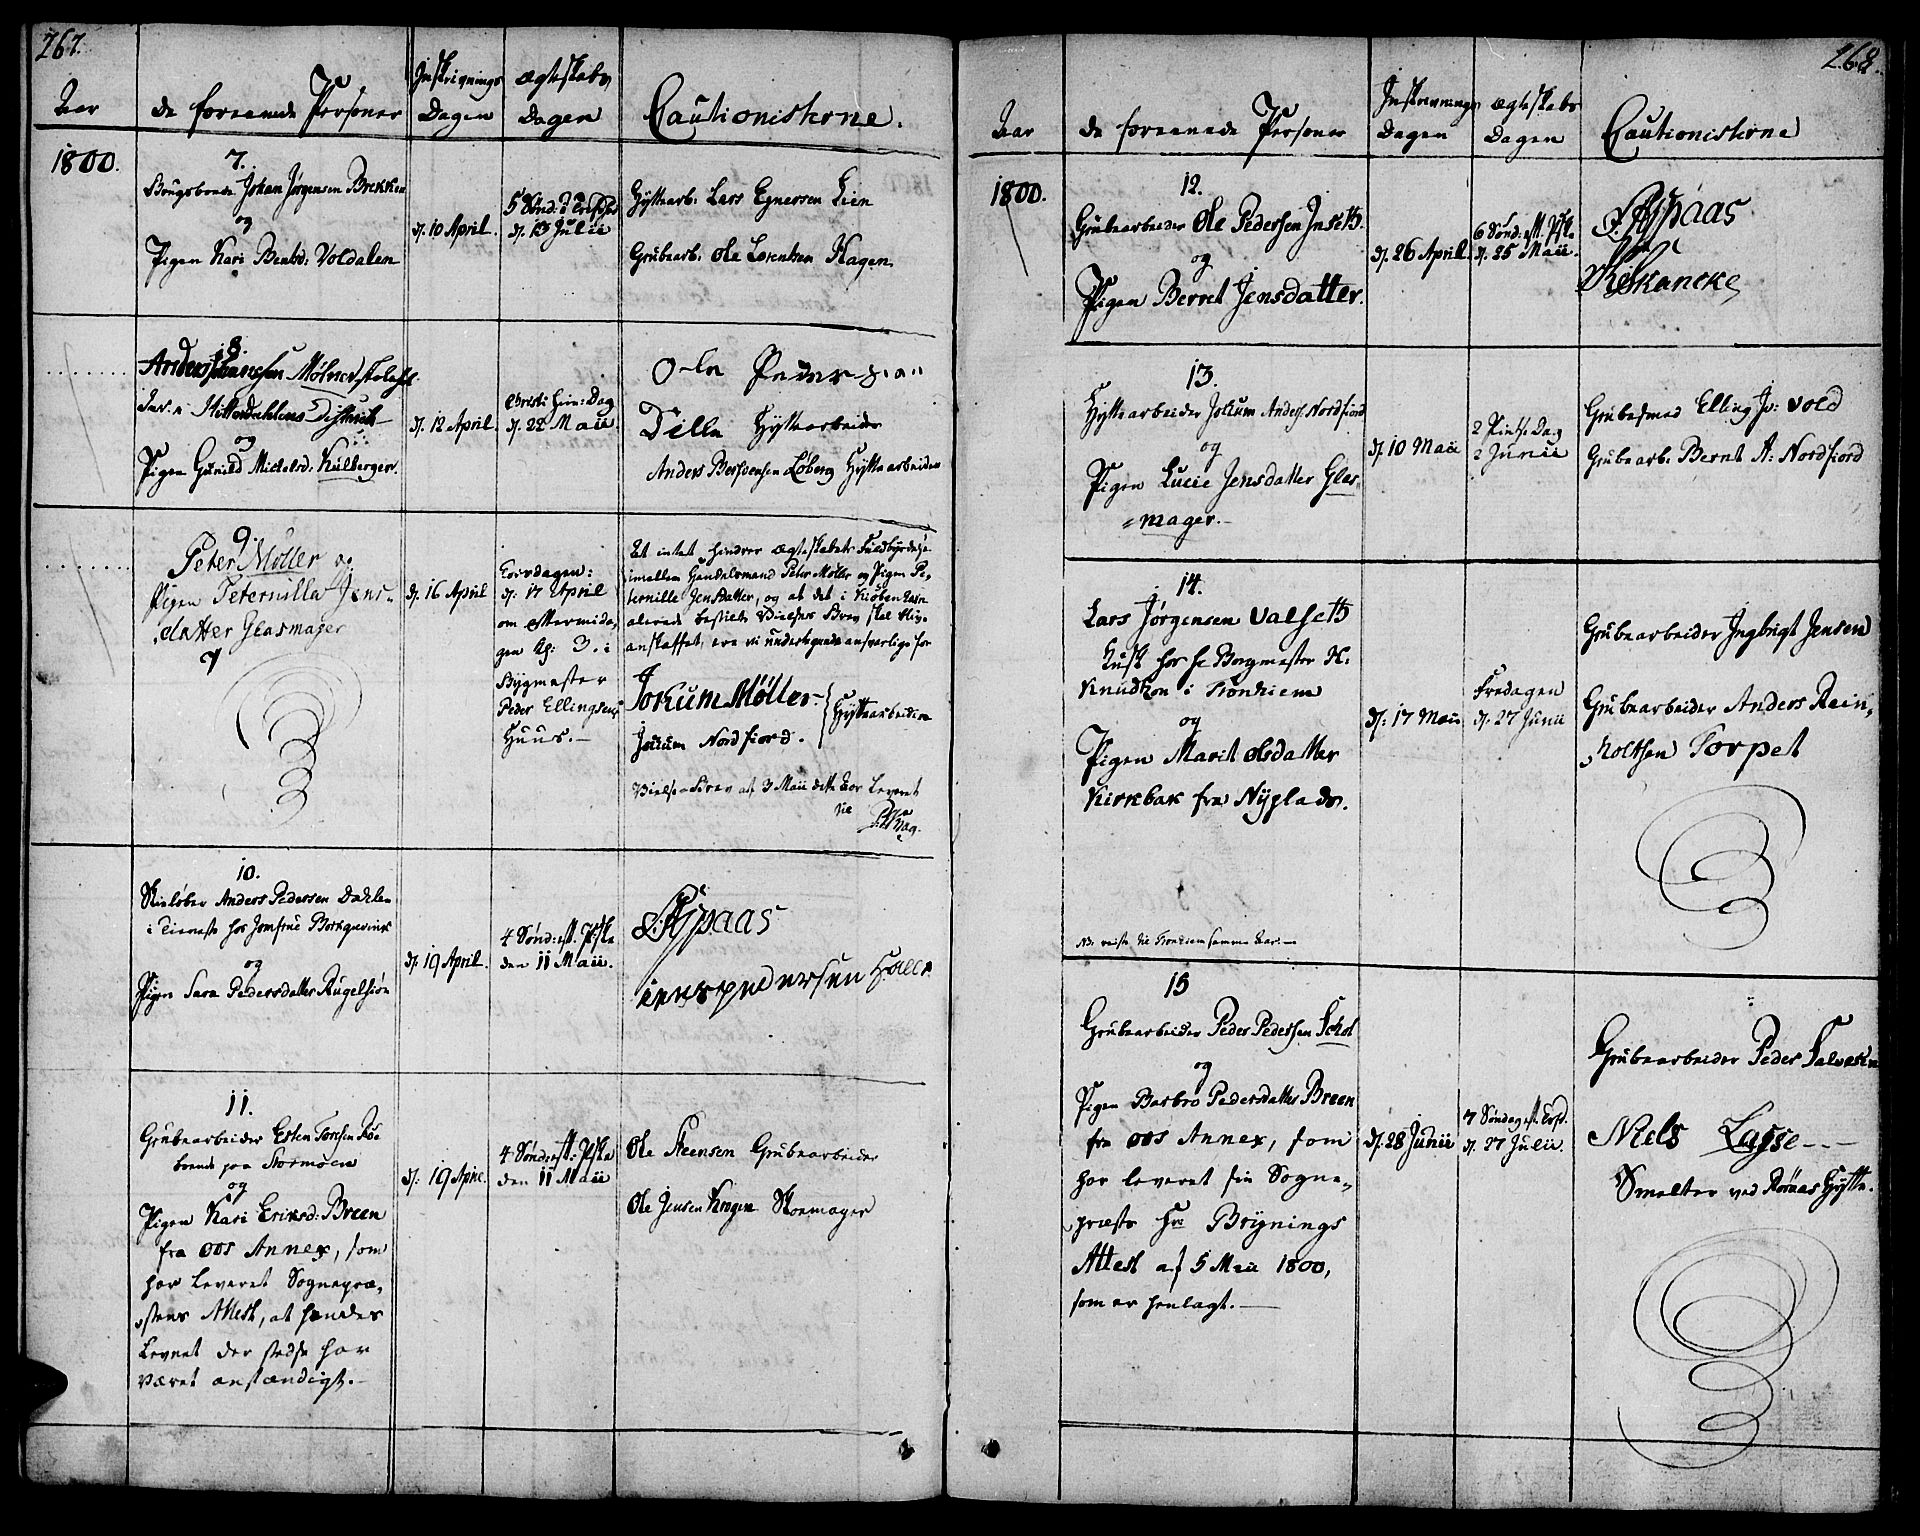 267.
Aar
de foreenede Personer
Inskrivnings
Dagen
Ægteskabs
Dagen
Cautionisterne.
1800.
7.
Johan Jørgensen Brekken
og
Pigen Kari Bentsd: Voldalen
d. 10 April.
5 Sønd:
d. 13 Julii
Hyttearb: Lars Egnersen Lien
Grubearb. Ole Lorentsen Hagen
8.
Anders Hansen Mølner
og
Pigen Gunild Mickelsd: Külberger.
d. 12 April.
Christi Him: Dag
d. 22 Maii.
Ole Peder
Dille Hyttearbeider
Anders Berswensen Løberg Hyttearbeider
9.
Peter Møller og
Pigen Peternilla Jens-
datter Glasmager
d. 16 April
Torsdagen:
d. 17 April
om Eftermida-
gen Kl: 3. i
Bygmester
Peder Ellingsens
Huus.-
At intet hindrer Ægteskabets Fuldbyrdelse
imellem Handelsmand Peter Møller og Pigen Pe-
ternille Jensdatter, og at det i Kiøbenhavn
allerede bestilte Vielses Brev skal bliv:
anskaffet, ere vi undertegnede ansvarlige for
Jokum Møller-
Jockum Nordfiord.
Hyttearbeidere
Vielse-Brev af 3 Maii dette Aar leveret
10.
Skieløber Anders Pedersen Dahlen
i Tieneste hos Jomfrue Borkgrevink
og
Pigen Sara Pedersdatter Rugelsiøn
d. 19 April.
4 Sønd: eft. Paaske
den 11 Maii.
Aspaas
ienspedersen Halle
11.
Grubearbeider Esten Toresen Røe
boende paa Stormoen
og
Pigen Kari Eriksd: Breen
fra Oos Annex, som
har leveret Sognepræ-
stens Attest, at hendes
Levnet der stedse har
været anstændigt.-
d: 19 April.
4 Sønd: eft: Paaske
den 11 Maii
Ole Steensen Grubearbeider
Ole Jensen Krogen Skoemager
268.
Aar
de foreenede Personer
Inskrivnings
Dagen
Ægteskabs
Dagen
Cautionisterne
1800.
12.
Grubearbeider Ole Pedersen Insetb.
og
Pigen Berret Jensdatter.
d. 26 April.
6 Sønd: eft. Psk.
d. 25 Maii.
Aspaas
Skancke
13.
Hyttearbeider Jockum Anders. Nordfiord
og
Pigen Lucie Jensdatter Glas-
mager.-
d. 10 Maii
2 Pintse Dag
2 Junii
Grubesmed Elling Jo: Vold
Grubearb. Bernt A: Nordfiord
14.
Lars Jørgensen Valseth
Kusk hos Hr Borgmester H:
Knudtzon i Tronhiem
og
Pigen Marit Olsdatter
Kirkbak fra Nyplads.
NB: reiste til Trondiem samme Aar.-
d: 17 Maii
Fredagen
d: 27 Junii
Grubearbeider Ingbrigt Jensen
Grubearbeider Anders Rein-
holtsen Torpet
15
Grubearbeider Peder Pedersen Schol
og
Pigen Barbro Pedersdatter Breen
fra Oos Annex, som
har leveret sin Sogne-
præste Hr Brynings
Attest af 5 Maii 1800,
som er henlagt.-
d. 28 Junii
7 Søndag eft.
d. 27 Julii.
Grubearbeider Peder
Niels Lasse---
Smelter ved Røraas Hytte.